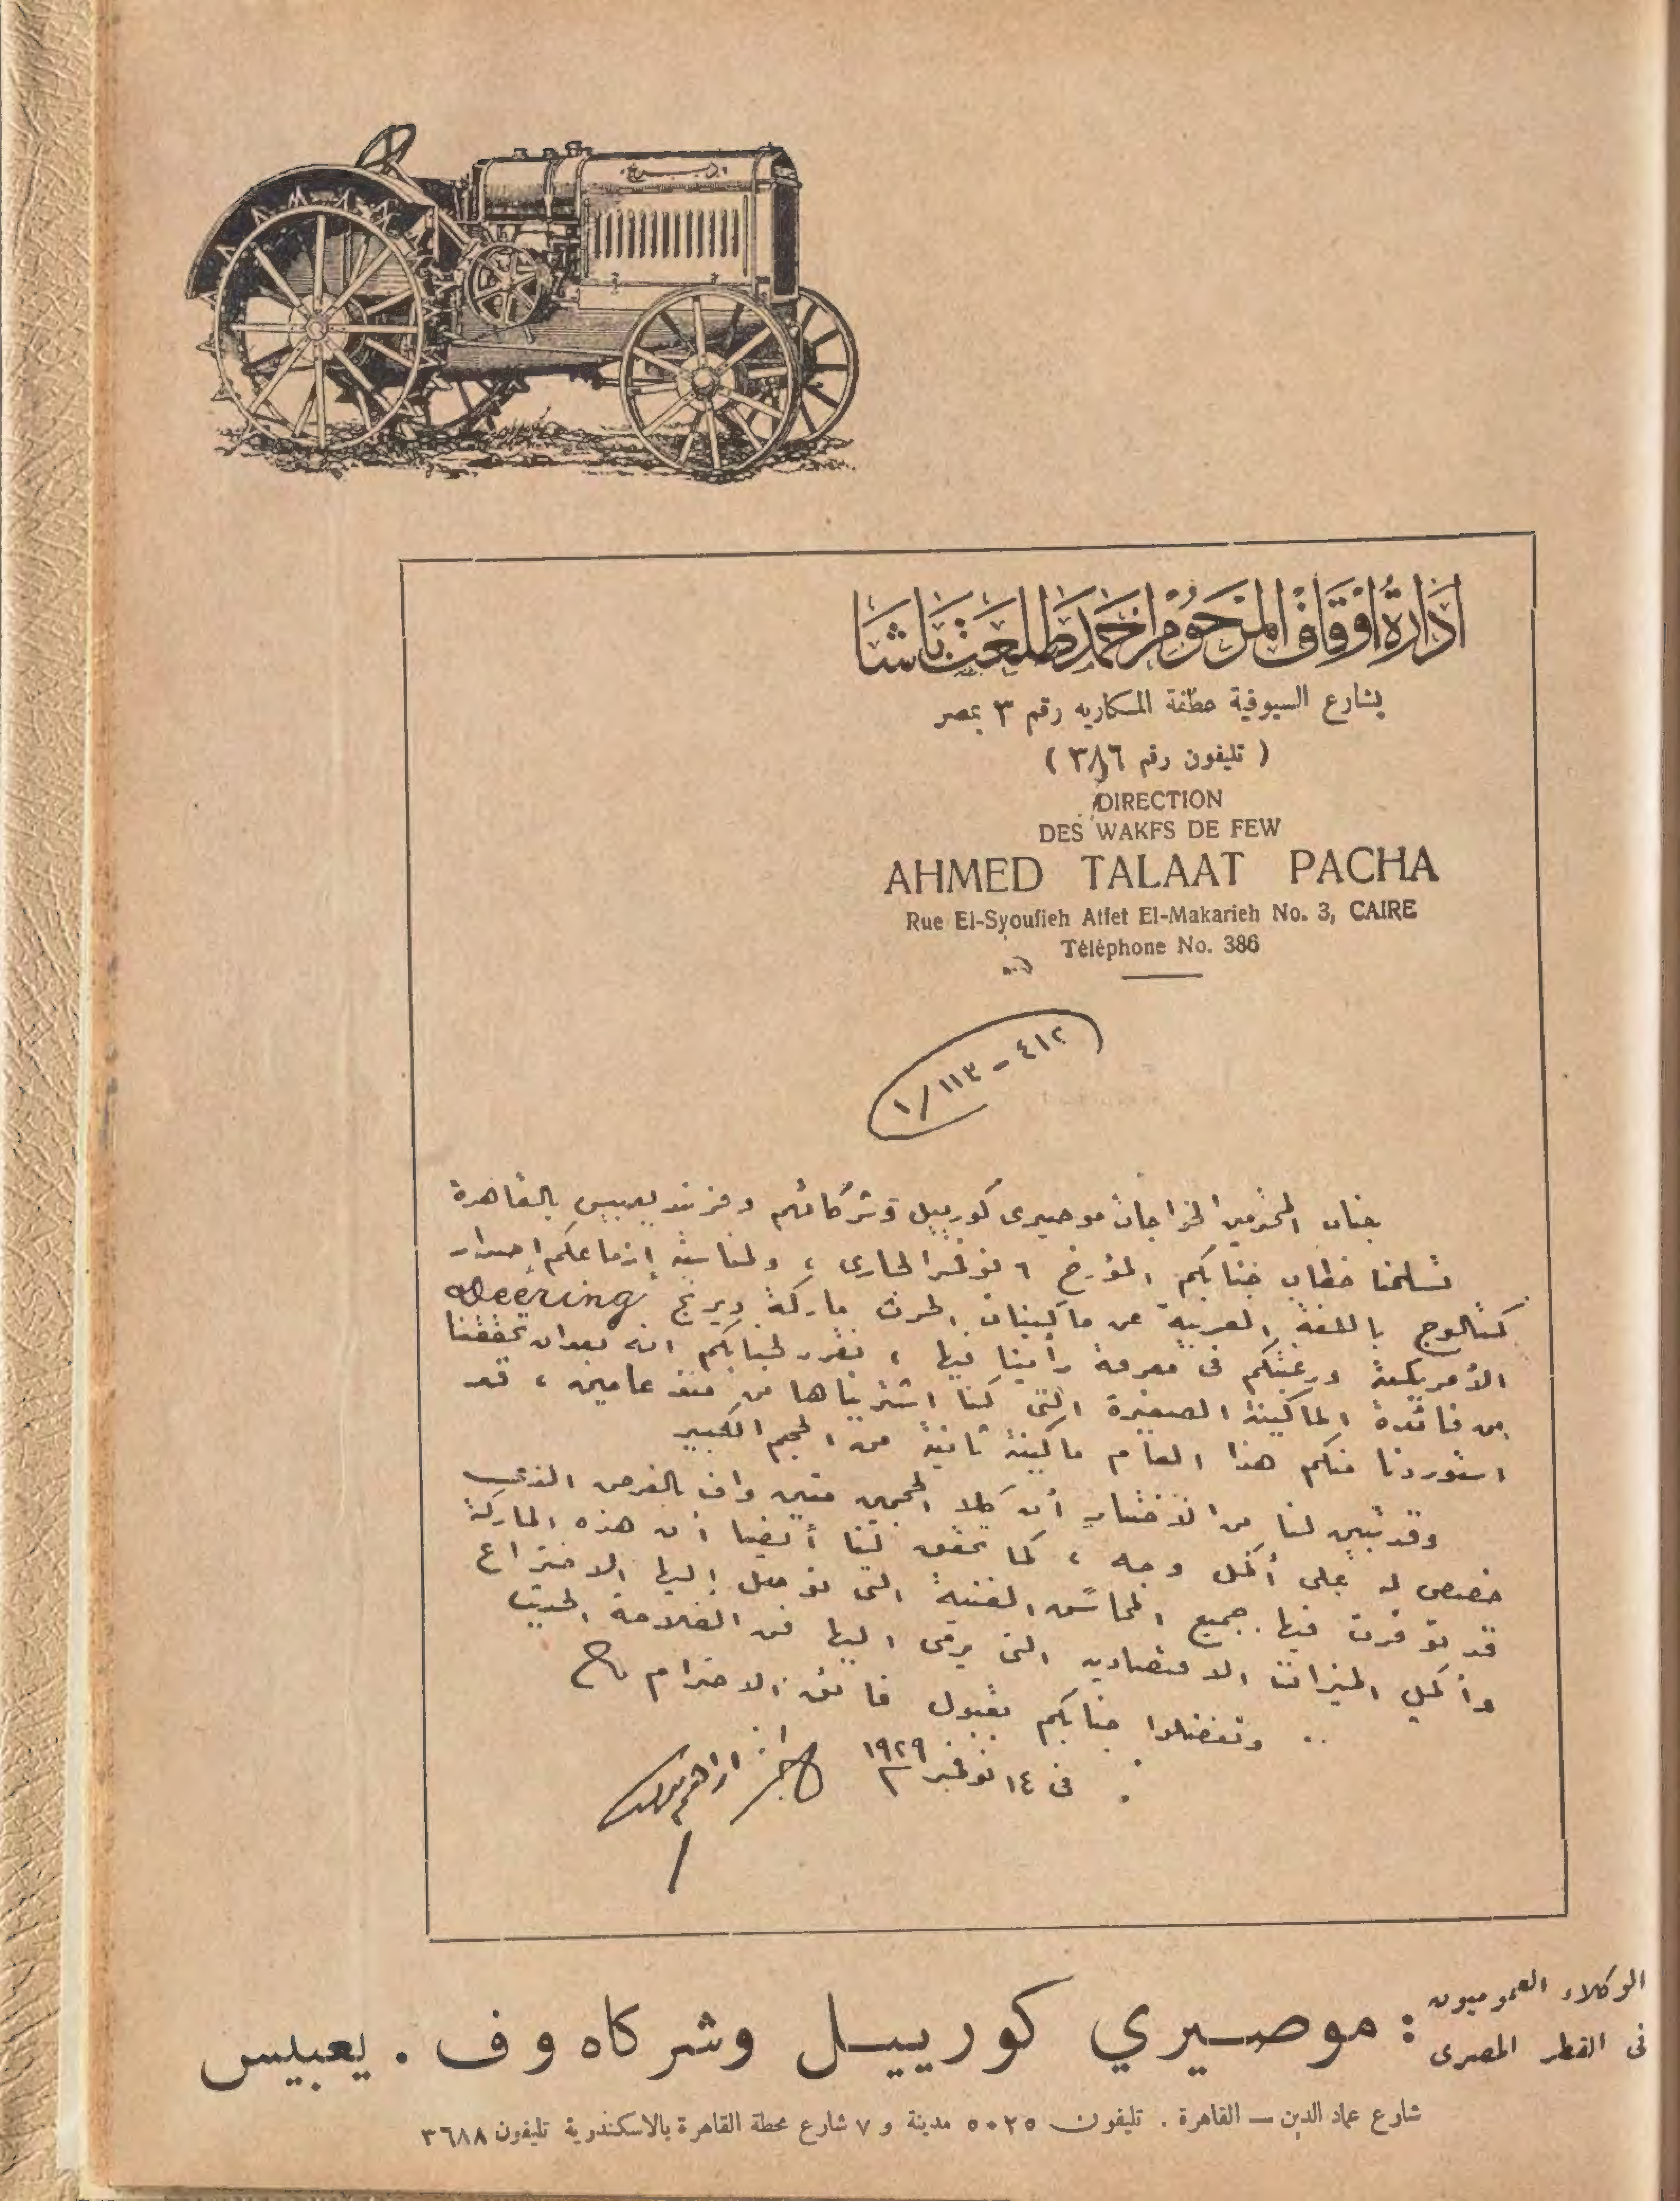 ديرنج
ادارة اوقاف المرحوم احمد طلعت باشا
بشارع السيوفية عطفة المكاريه رقم ٣ بمصر
( تليفون رقم ٣٨٦ )
DIRECTION
DES WAKFS DE FEW
AHMED TALAAT PACHA
Rue El-Syoufieh Atfet El-Makarieh No. 3, CAIRE
Téléphone No. 386
٤١٢ - ١١٣ / ١
جناب المحترمين الخواجات موصيرى كورييل وشركائهم وفرند يعبيس بالقاهرة
تسلمنا خطاب جنابكم المؤرخ ٦ نوفمبر الجارى ، ولمناسبة إزماعكم إصدار
كتالوج باللغة العربية عن ماكينات الحرث ماركة ديرنج Deering
الأمريكية ورغبتكم فى معرفة رأينا فيها ، نقرر لجنابكم انه بعد ان تحققنا
من فائدة الماكينة الصغيرة التى كنا اشتريناها من منذ عامين ، قد
استوردنا منكم هذا العام ماكينة ثانية من الحجم الكبير
وقد تبين لنا من الاختبار أن كلا الحجمين متين واف بالغرض الذى
خصص له على أكمل وجه ، كما تحقق لنا أيضا أن هذه الماركة
قد توفرت فيها جميع المحاسن الفنية التى توصل إليها الاختراع
وأكمل الميزات الاقتصادية التى يرمى اليها فن الفلاحة الحديث
وتفضلوا جنابكم بقبول فائق الاحترام
فى ١٤ نوفمبر ١٩٢٩
الوكلاء العموميون
فى القطر المصرى
: موصيري كورييل وشركاه و ف . يعبيس
شارع عماد الدين — القاهرة . تليفون ٥٠٢٥ مدينة و ٧ شارع محطة القاهرة بالاسكندرية تليفون ٣٦٨٨